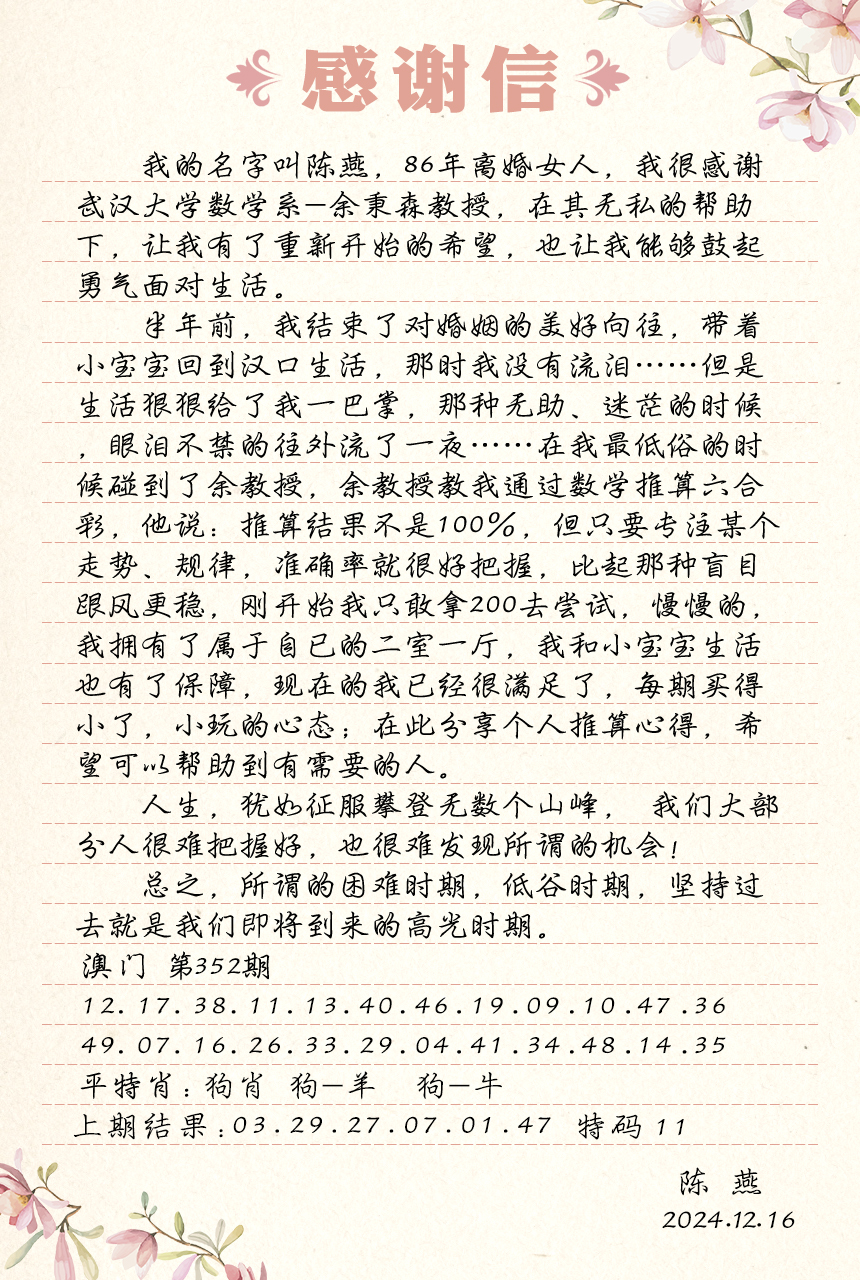 感谢信
我的名字叫陈燕，86年离婚女人，我很感谢
武汉大学数学系—余秉森教授，在其无私的帮助
下，让我有了重新开始的希望，也让我能够鼓起
勇气面对生活。
半年前，我结束了对婚姻的美好向往，带着
小宝宝回到汉口生活，那时我没有流泪……但是
生活狠狠给了我一巴掌，那种无助、迷茫的时候
，眼泪不禁的往外流了一夜……在我最低俗的时
候碰到了余教授，余教授教我通过数学推算六合
彩，他说：推算结果不是100%，但只要专注某个
走势、规律，准确率就很好把握，比起那种盲目
跟风更稳，刚开始我只敢拿200去尝试，慢慢的，
我拥有了属于自已的二室一厅，我和小宝宝生活
也有了保障，现在的我已经很满足了，每期买得
小了，小玩的心态；在此分享个人推算心得，希
望可以帮助到有需要的人。
人生，犹如征服攀登无数个山峰， 我们大部
分人很难把握好，也很难发现所谓的机会！
总之，所谓的困难时期，低谷时期，坚持过
去就是我们即将到来的高光时期。
澳门 第352期
12.17.38.11.13.40.46.19.09.10.47.36
49.07.16.26.33.29.04.41.34.48.14.35
平特肖：狗肖 狗—羊 狗—牛
上期结果：03.29.27.07.01.47 特码 11
陈 燕
2024.12.16